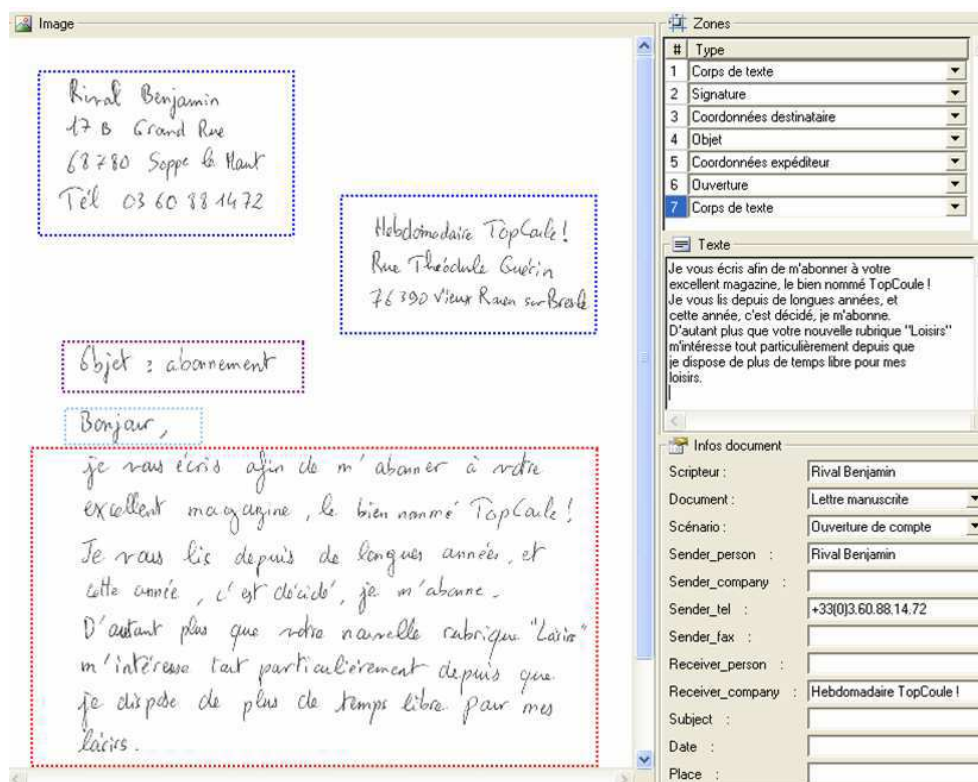 Image
Rival Benjamin
17 B Grand Rue
68780 Soppe le Haut
Tél 03 60 88 14 72
Hebdomadaire TopCoule !
Rue Théodule Guérin
76390 Vieux Rouen sur Bresle
Objet : abonnement
Bonjour,
je vous écris afin de m'abonner à votre
excellent magazine, le bien nommé TopCoule !
Je vous lis depuis de longues années, et
cette année, c'est décidé, je m'abonne.
D'autant plus que votre nouvelle rubrique "Loisirs"
m'intéresse tout particulièrement depuis que
je dispose de plus de temps libre pour mes
loisirs.
Zones
# Type
1 Corps de texte
2 Signature
3 Coordonnées destinataire
4 Objet
5 Coordonnées expéditeur
6 Ouverture
7 Corps de texte
Texte
Je vous écris afin de m'abonner à votre
excellent magazine, le bien nommé TopCoule !
Je vous lis depuis de longues années, et
cette année, c'est décidé, je m'abonne.
D'autant plus que votre nouvelle rubrique "Loisirs"
m'intéresse tout particulièrement depuis que
je dispose de plus de temps libre pour mes
loisirs.
Infos document
Scripteur : Rival Benjamin
Document : Lettre manuscrite
Scénario : Ouverture de compte
Sender_person : Rival Benjamin
Sender_company :
Sender_tel : +33(0)3.60.88.14.72
Sender_fax :
Receiver_person :
Receiver_company : Hebdomadaire TopCoule !
Subject :
Date :
Place :